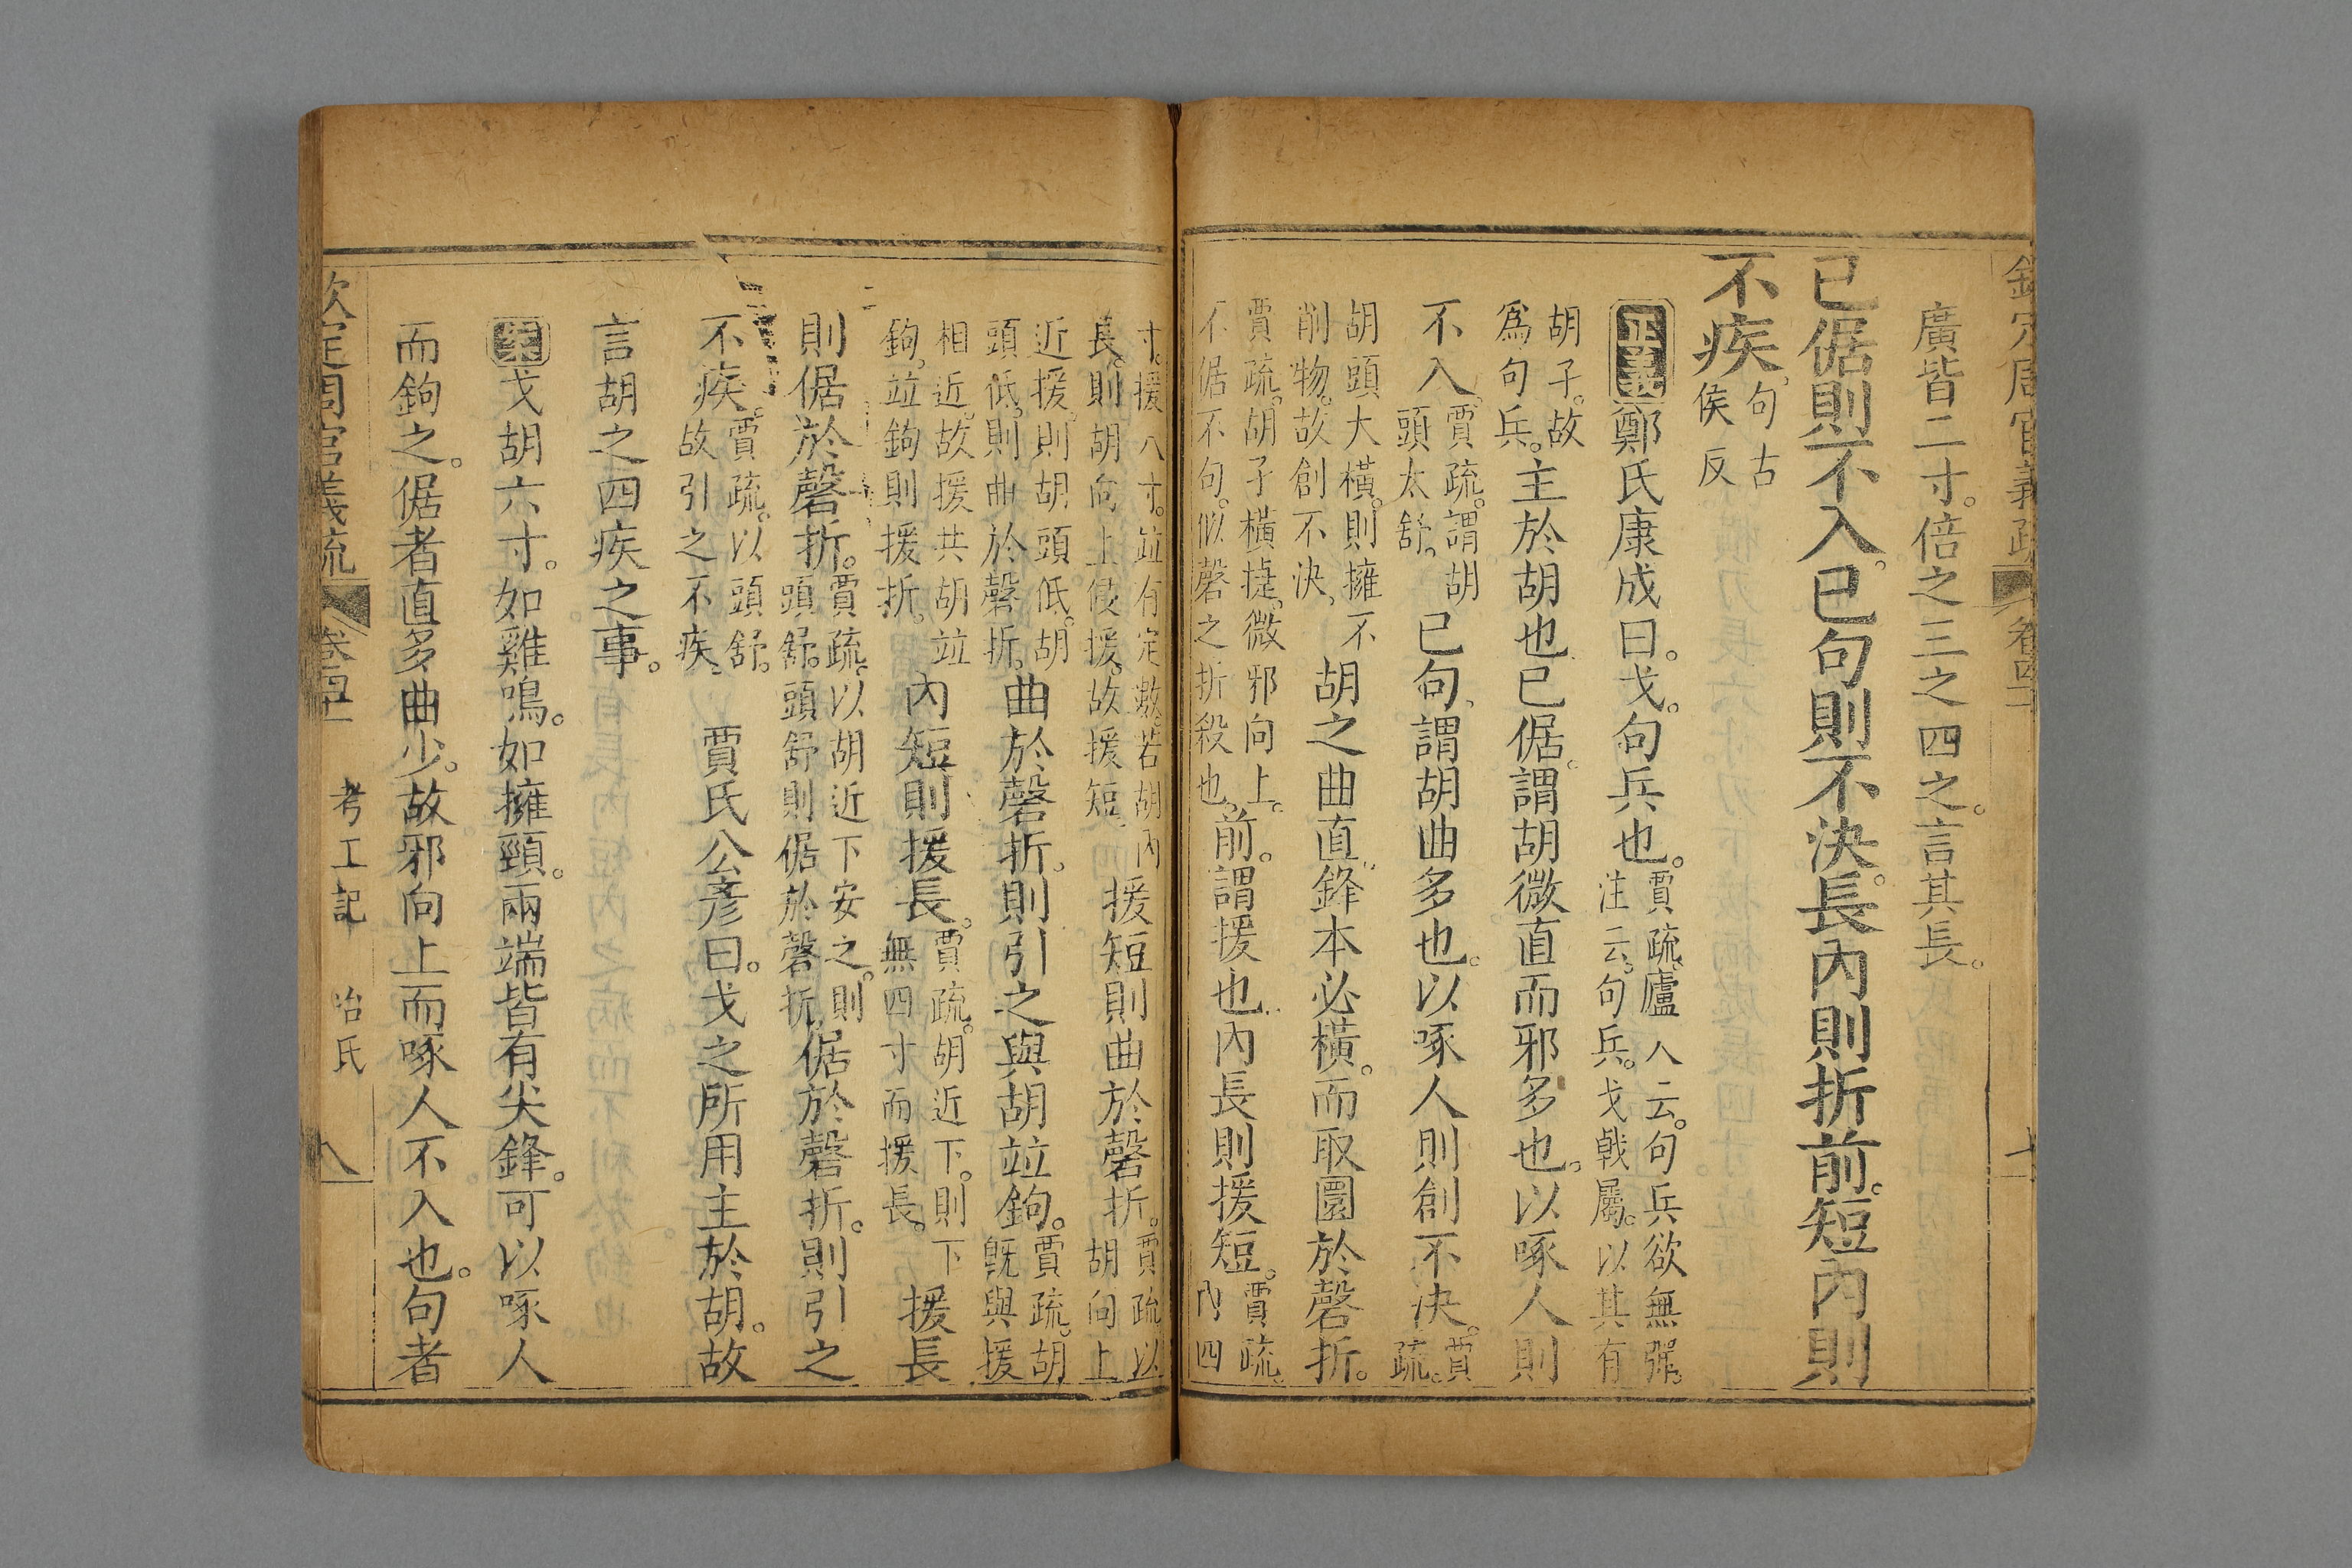 欽定周官義疏 卷四十
廣皆二寸。倍之三之四之。言其長。
已倨則不入。已句則不決。長內則折前。短內則
不疾。句古侯反
正義鄭氏康成曰。戈。句兵也。賈疏。廬人云。句兵欲無彈。注云。句兵。戈戟屬。以其有
胡孑。故爲句兵。主於胡也。已倨。謂胡微直而邪多也。以啄人則
不入。賈疏。謂胡頭太舒。已句。謂胡曲多也。以啄人則創不決。賈疏。
胡頭大橫。則擁不削物。故創不決。胡之曲直。鋒本必橫。而取圜於磬折。
賈疏。胡孑橫捷。微邪向上。不倨不句。似磬之折殺也。前。謂援也。內長則援短。賈疏。內四
寸。援八寸。竝有定數。若胡內長。則胡向上侵援。故援短。援短則曲於磬折。賈疏以胡向上
近援。則胡頭低。胡頭低。則曲於磬折。曲於磬折。則引之與胡竝鉤。賈疏。胡既與援
相近。故援共胡竝鉤。竝鉤則援折。內短則援長。賈疏。胡近下。則下無四寸而援長。援長
則倨於磬折。賈疏。以胡近下安之。則頭舒。頭舒則倨於磬折。倨於磬折。則引之
不疾。賈疏。以頭舒。故引之不疾。賈氏公彥曰。戈之所用主於胡。故
言胡之四疾之事。
案戈胡六寸。如雞鳴。如擁頸。兩端皆有尖鋒。可以啄人
而鉤之。倨者直多曲少。故邪向上而啄人不入也。句者
欽定周官義疏 卷四十 考工記 冶氏 八